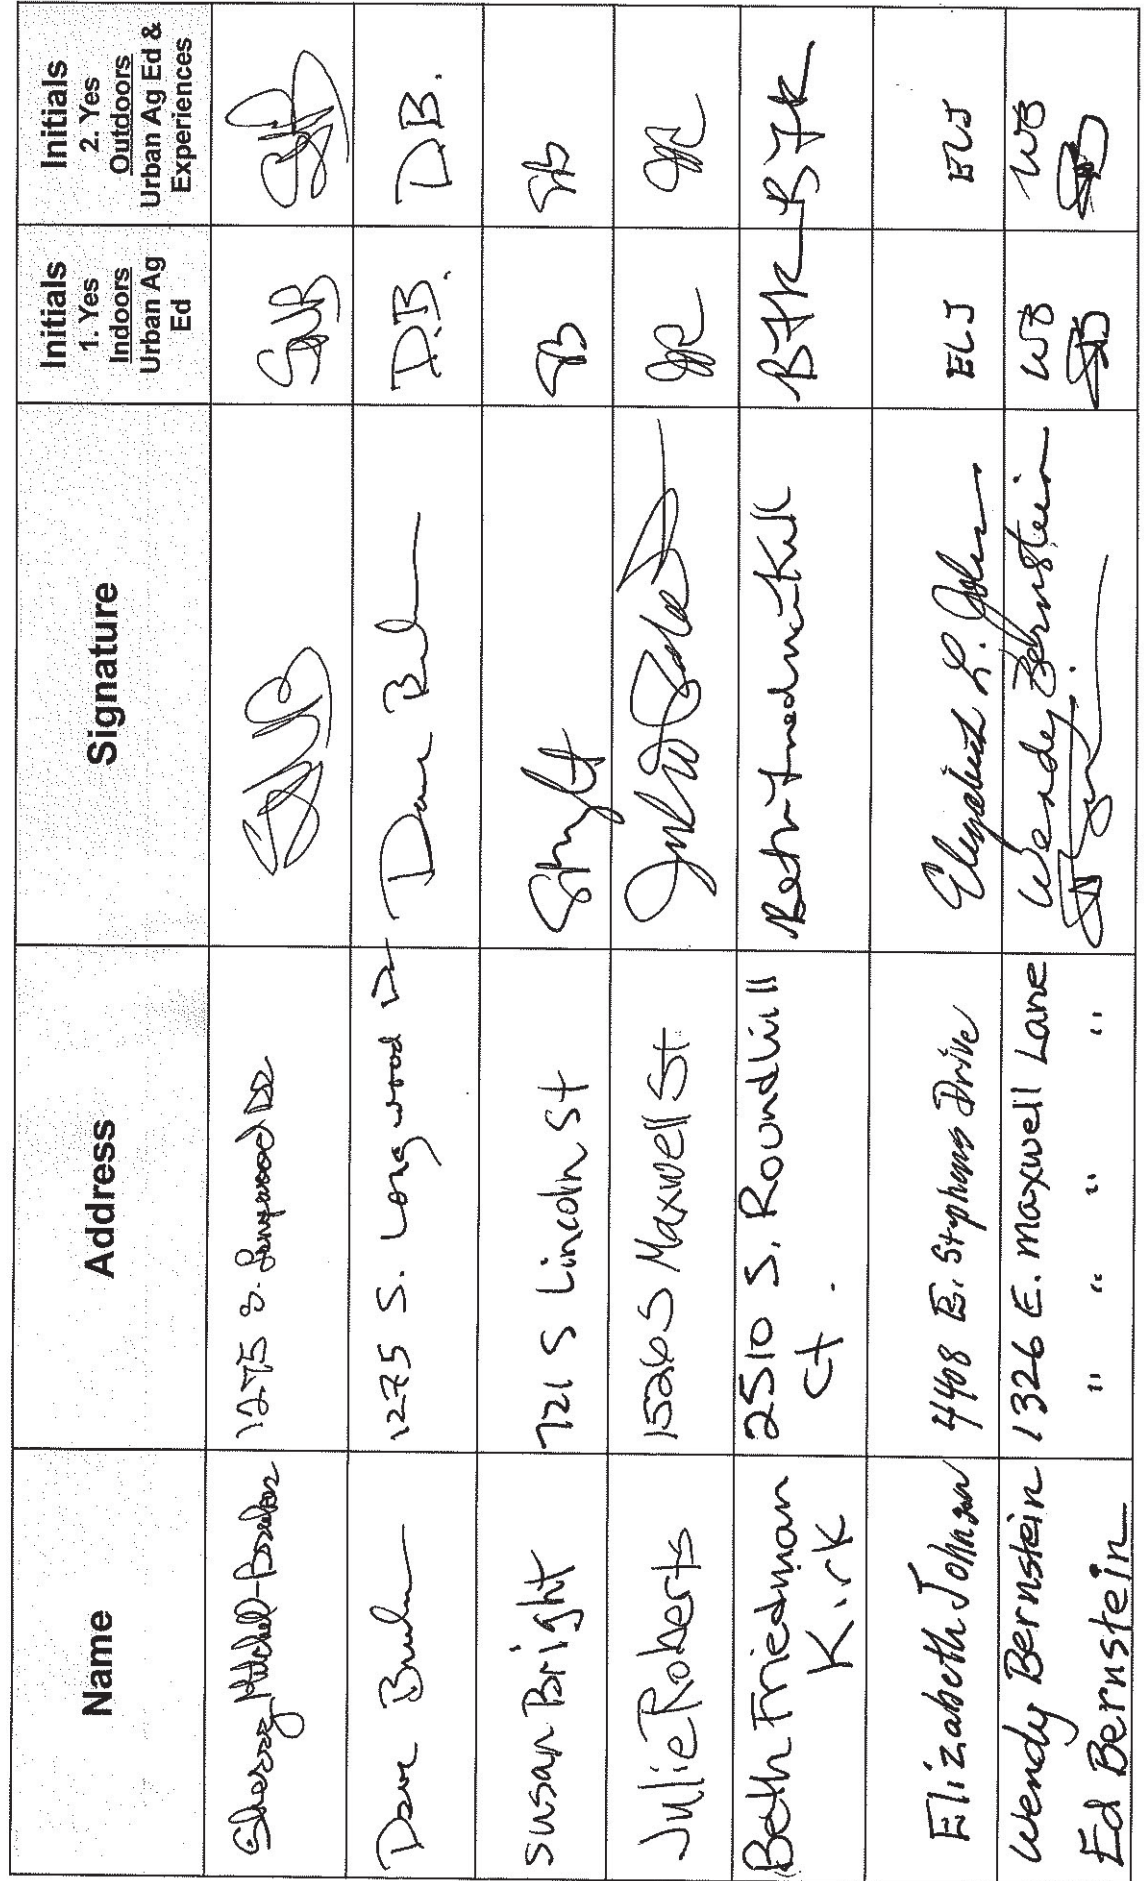 Name Address Signature Initials 1. Yes Indoors Urban Ag Ed Initials 2. Yes Outdoors Urban Ag Ed & Experiences
Sherry Mitchell- 1275 S. Longwood Dr SMB SMB
Dave 1275 S. Longwood Dr Dave D.B. D.B.
Susan Bright 721 S Lincoln St SB SB
Julie Roberts 1526 S Maxwell St Julie JR JR
Beth Friedman Kirk 2510 S. Roundhill Ct. Beth Friedman Kirk BFK BFK
Elizabeth Johnson 4408 E. Stephens Drive Elizabeth L. Johnson ELJ ELJ
Wendy Bernstein 1326 E. Maxwell Lane Wendy Bernstein WB WB
Ed Bernstein " " " " EB EB